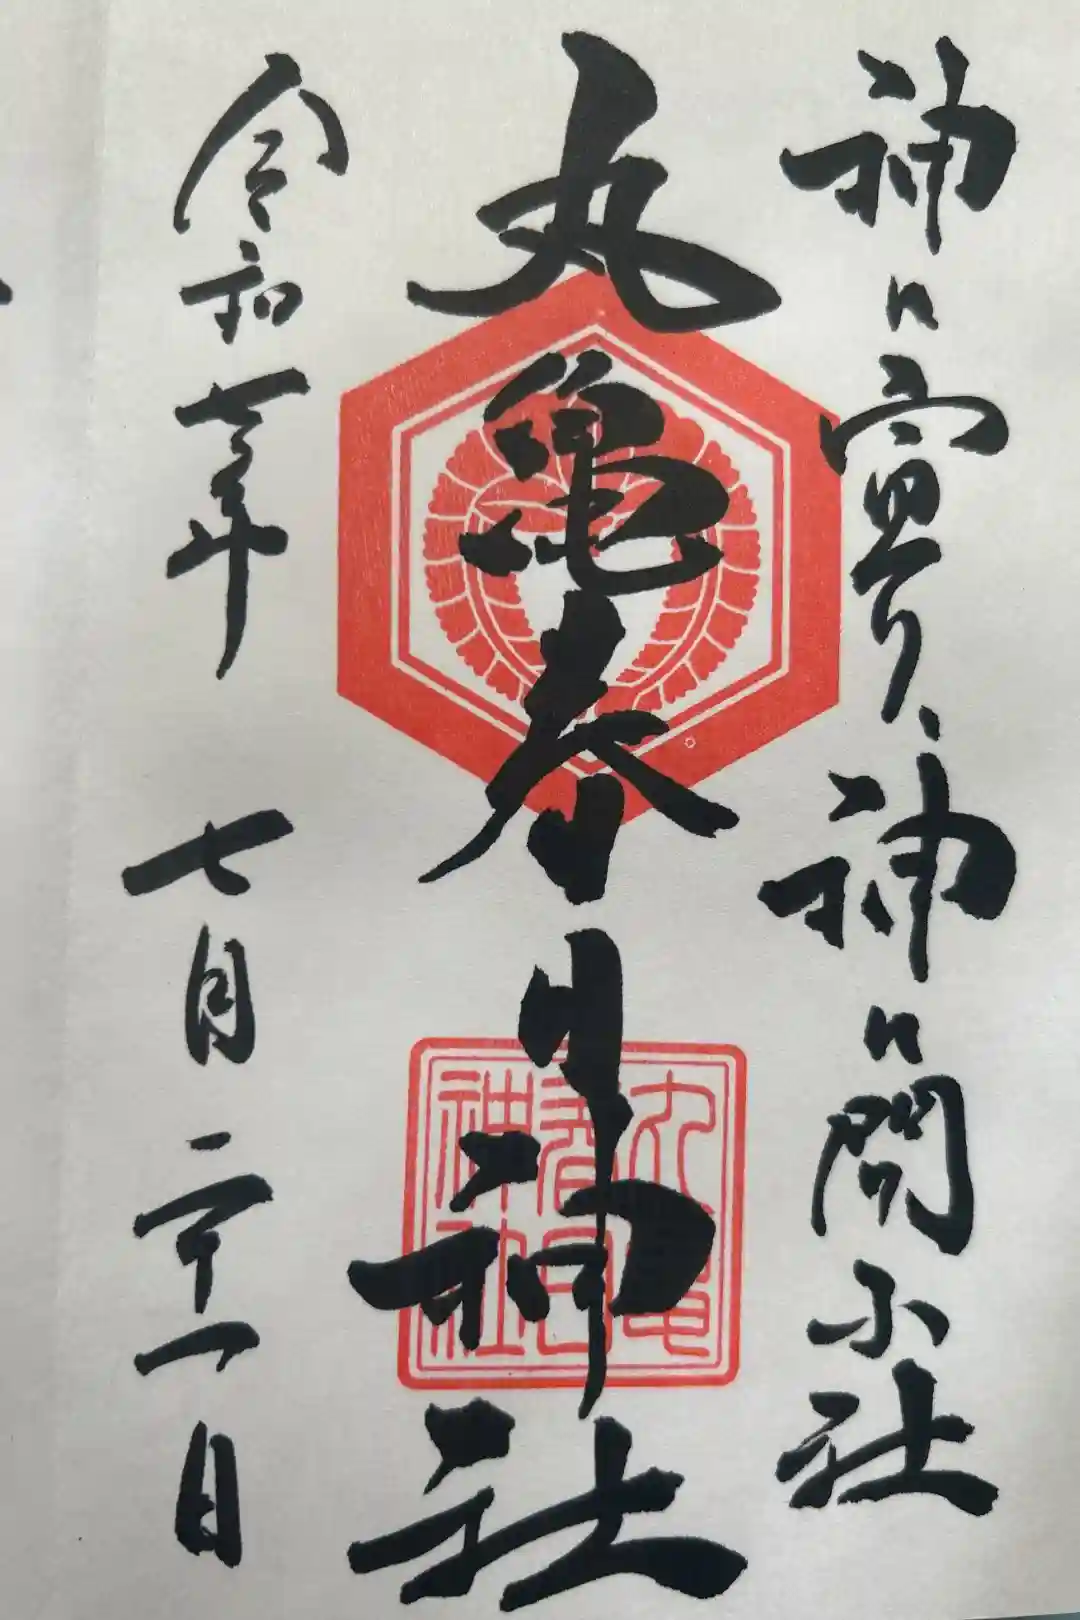 神々り、神々社
丸亀春日神社
令和七年 七月二十一日
丸亀
春日
神社